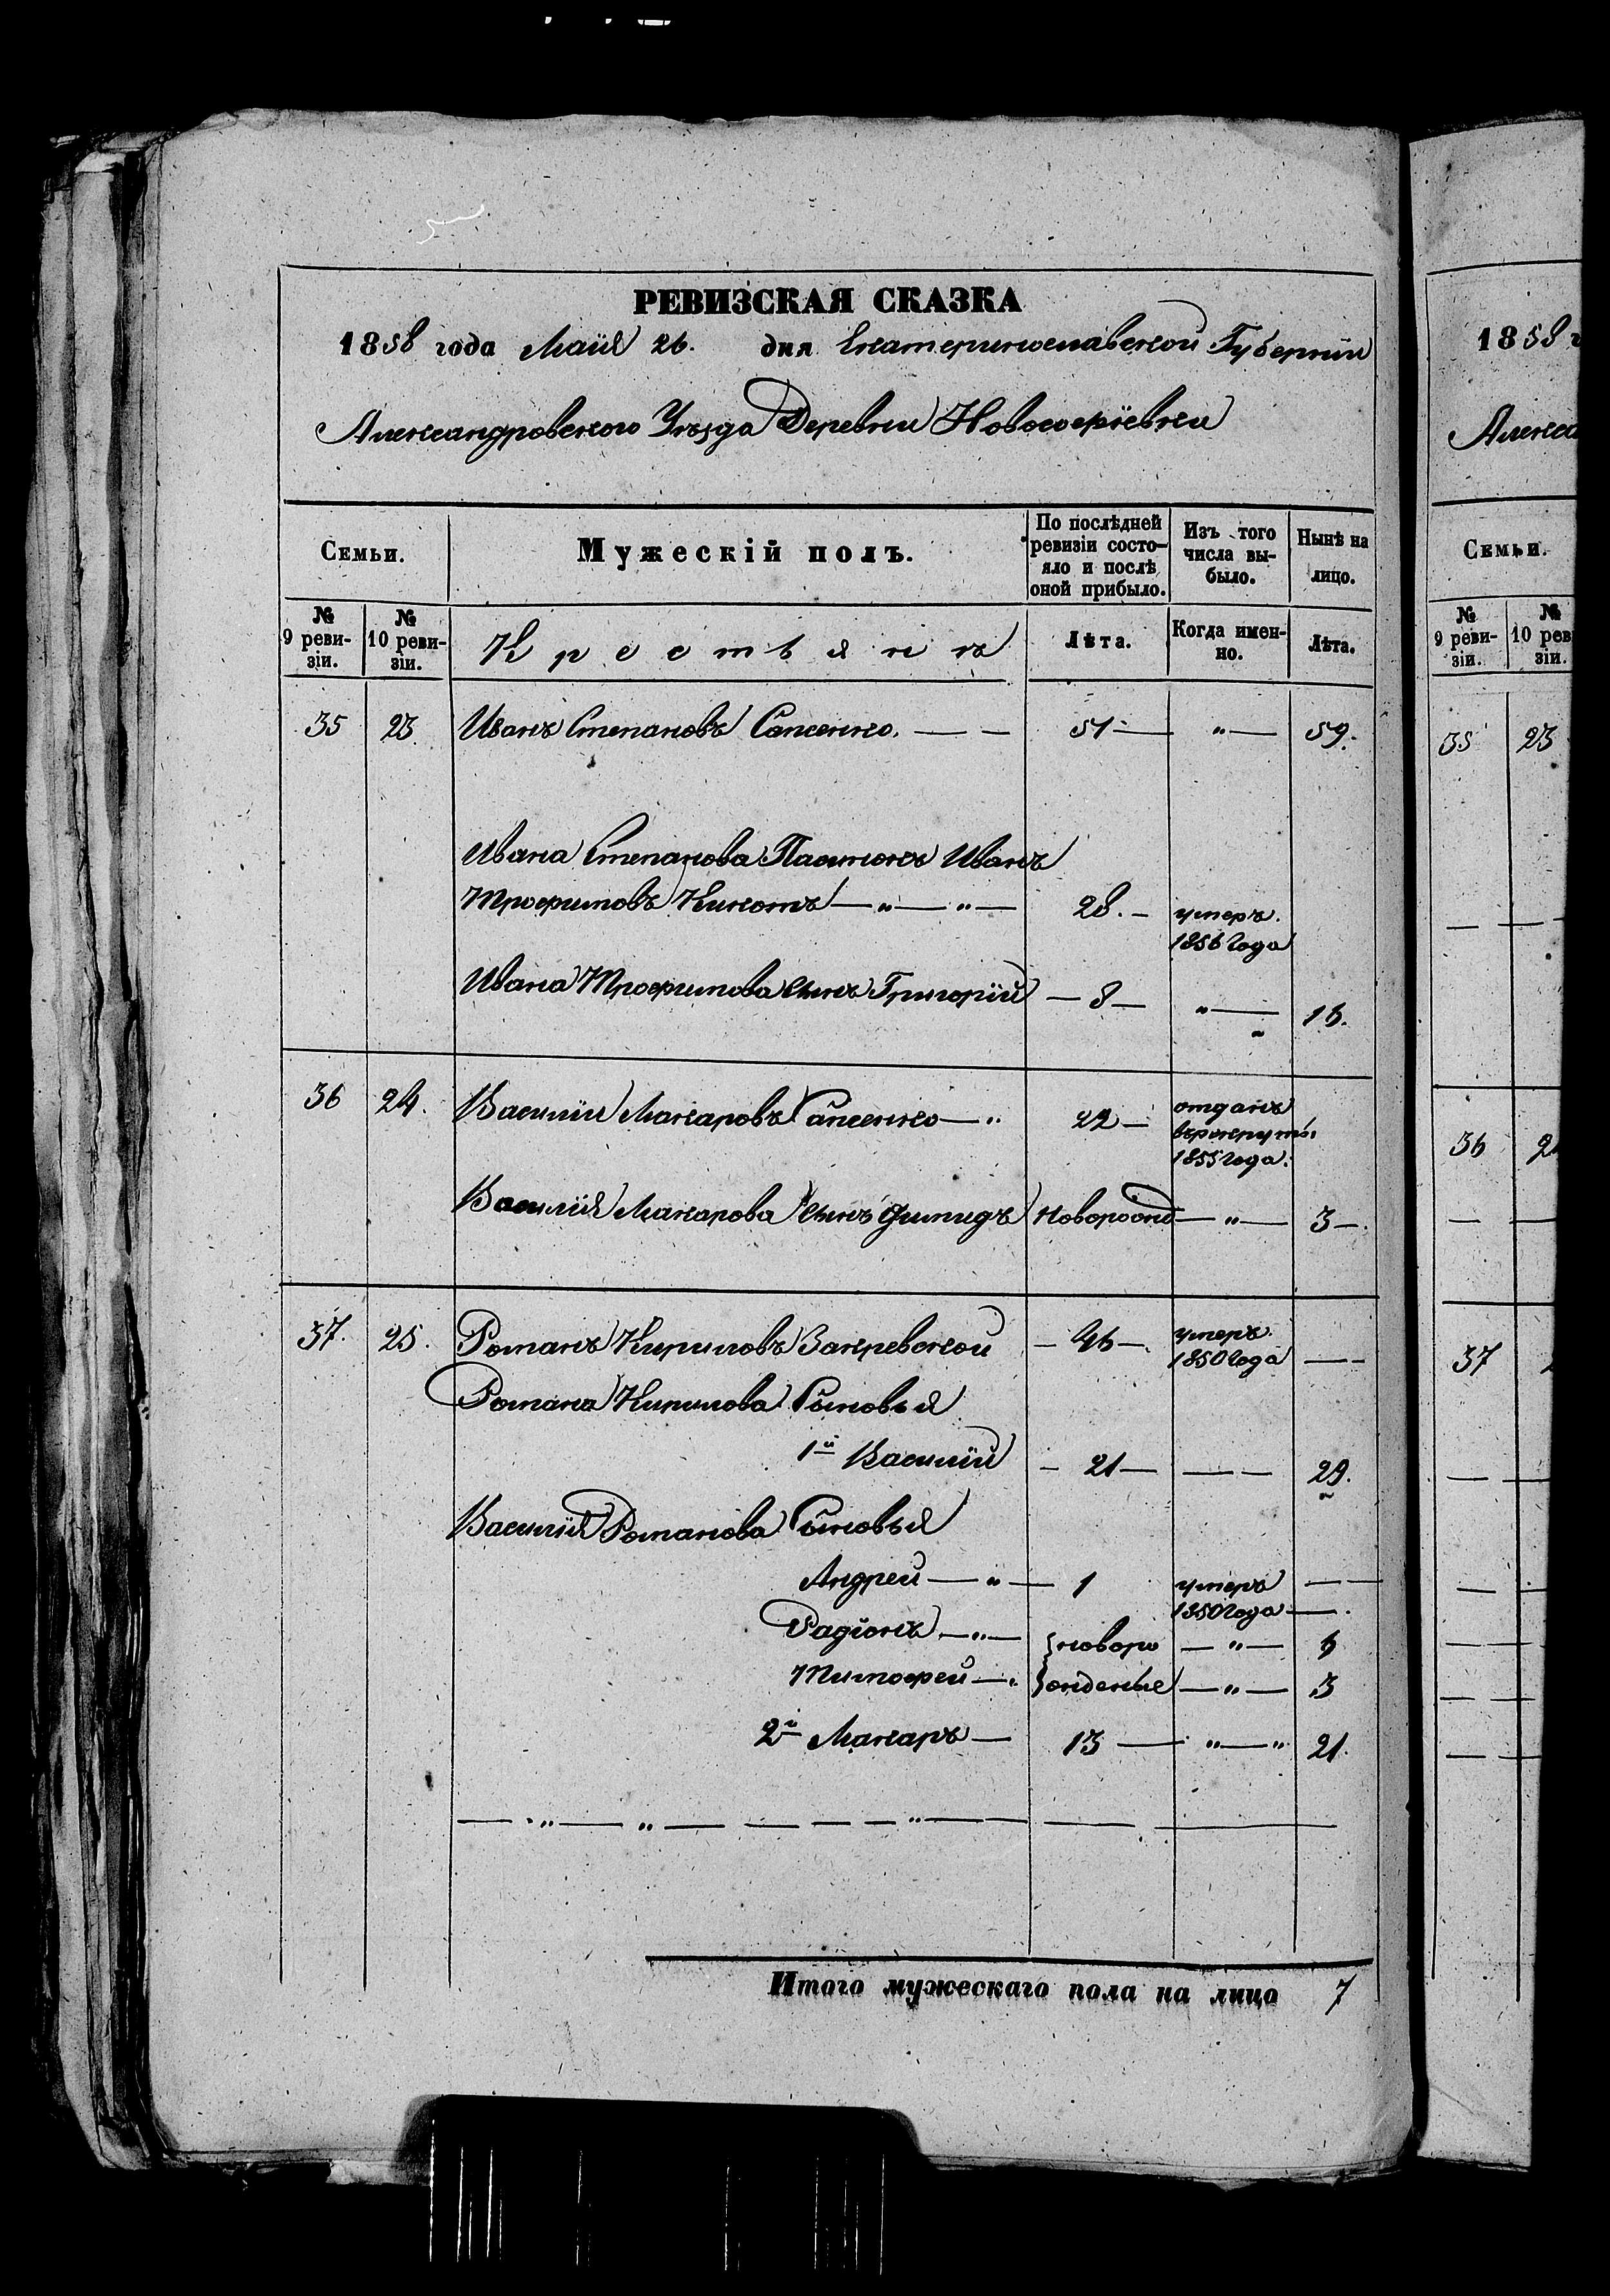 РЕВИЗСКАЯ СКАЗКА
1858 года Маія 26. дня Екатеринославской Губерніи
Александровского Уѣзда Деревни Новософіевки
Семьи.
Мужескій полъ.
По послѣдней ревизіи состояло и послѣ оной прибыло.
Изъ того числа выбыло.
Нынѣ на лицо.
№ 9 ревизіи.
№ 10 ревизіи.
Крестьянъ
Лѣта.
Когда именно.
Лѣта.
35 23 Иванъ Степановъ Сапсенко. — — 51 — „ — 59.
Ивана Степанова Пасинокъ Иванъ
Трофимовъ Кикотъ — „ — „ — 28. — умеръ.
1856 года
Ивана Трофимова Сынъ Григорій — 8 — „ — 16.
36 24. Василій Макаровъ Сапсенко — „ 22 — отданъ
въ рекруты
1855 года.
Василія Макарова Сынъ Филидъ Новорожд — „ — 3 —.
37. 25. Романъ Кириловъ Закревской — 46 —. умеръ.
1850 года — —
Романа Кирилова Сыновья
1й Василій — 21 — — — 29.
Василія Романова Сыновья
Андрей — „ — 1 умеръ — —
1850 года — .
Радіонъ — „ — новоро — „ — 6
Тимофей — „ жденые — „ — 3
2й Макаръ — 13 — „ — „ 21.
Итого мужескаго пола на лицо 7
1858
Алекса
Семьи.
№ 9 ревизіи.
№ 10 рев
зіи.
35 23
36 2
37